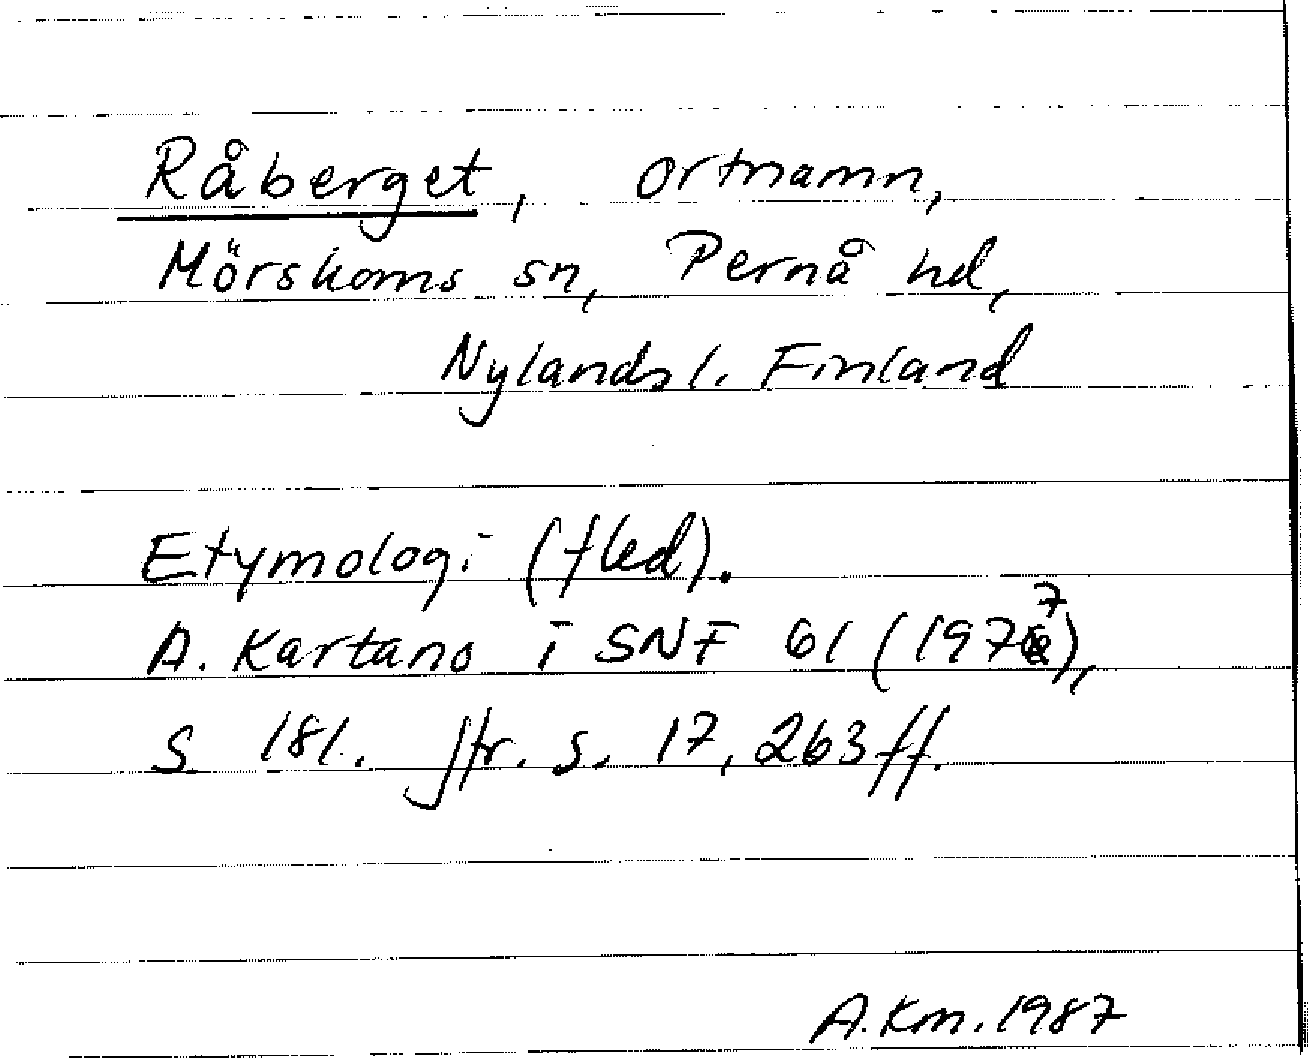 Råberget, ortnamn,
Mörskoms sn, Pernå hd,
Nylands l. Finland
Etymologi (fled).
A. Kartano i SNF 61 (1977),
s 181. Jfr. s. 17, 263 ff.
A.Km. 1987